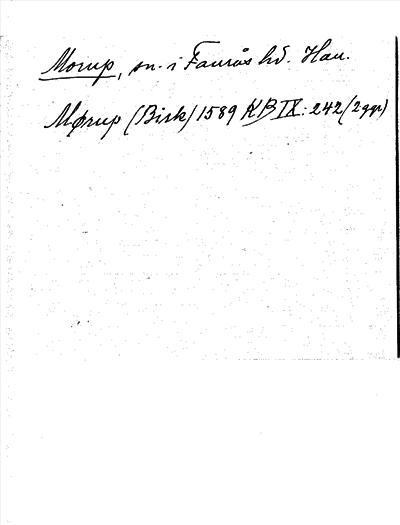 Morup, sn. i Faurås hd. Hall.
Mørup (Birk) 1589 KB IX: 242 (2 ggr)